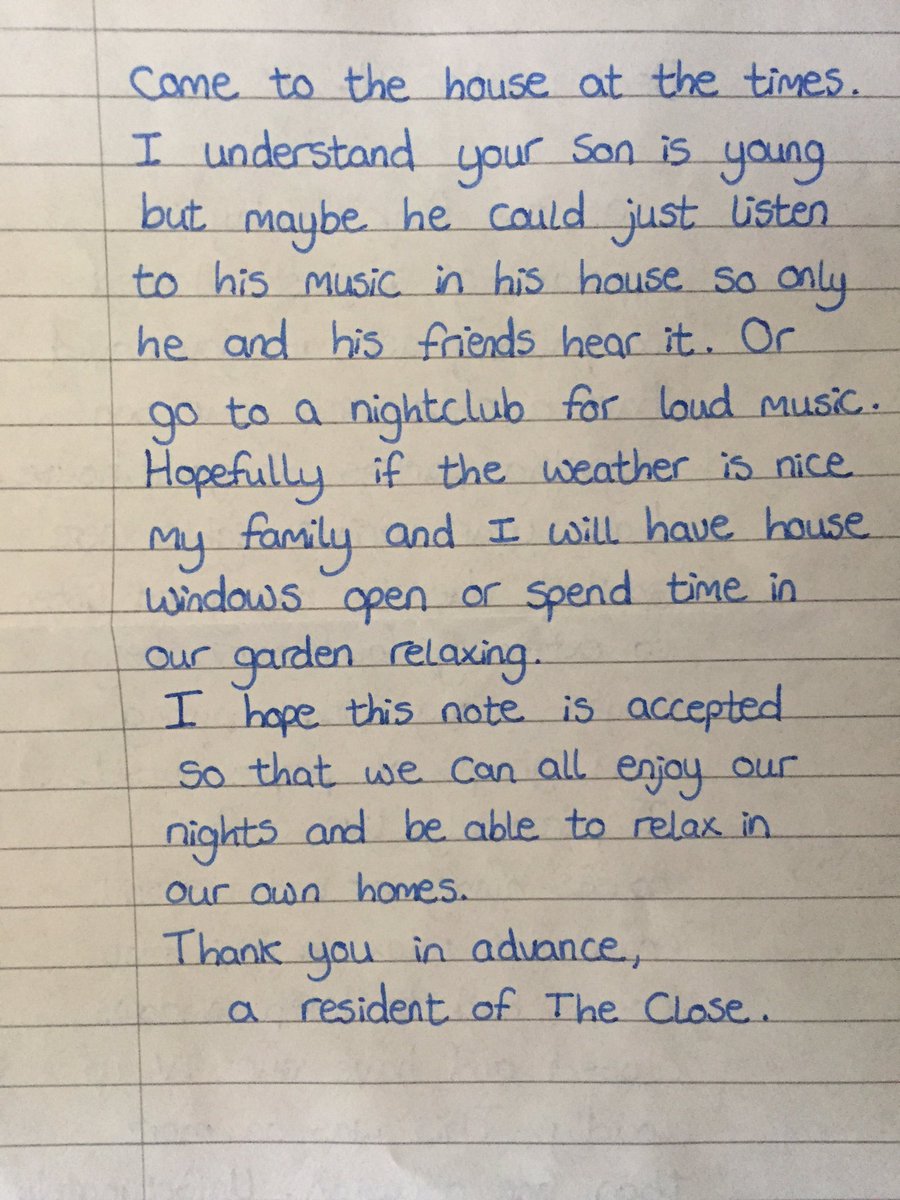 Come to the house at the times.
I understand your son is young
but maybe he could just listen
to his music in his house so only
he and his friends hear it. Or
go to a nightclub for loud music.
Hopefully if the weather is nice
my family and I will have house
windows open or spend time in
our garden relaxing.
I hope this note is accepted
so that we can all enjoy our
nights and be able to relax in
our own homes.
Thank you in advance,
a resident of The Close.